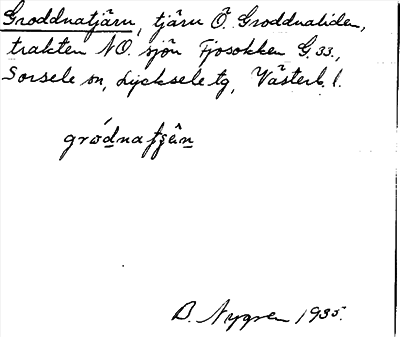 Groddnatjärn, tjärn Ö. Groddnaliden,
trakten NO. sjön Fjosokken G. 33.,
Sorsele sn, Lycksele tg, Västerb. l.
D. Nygren 1935.